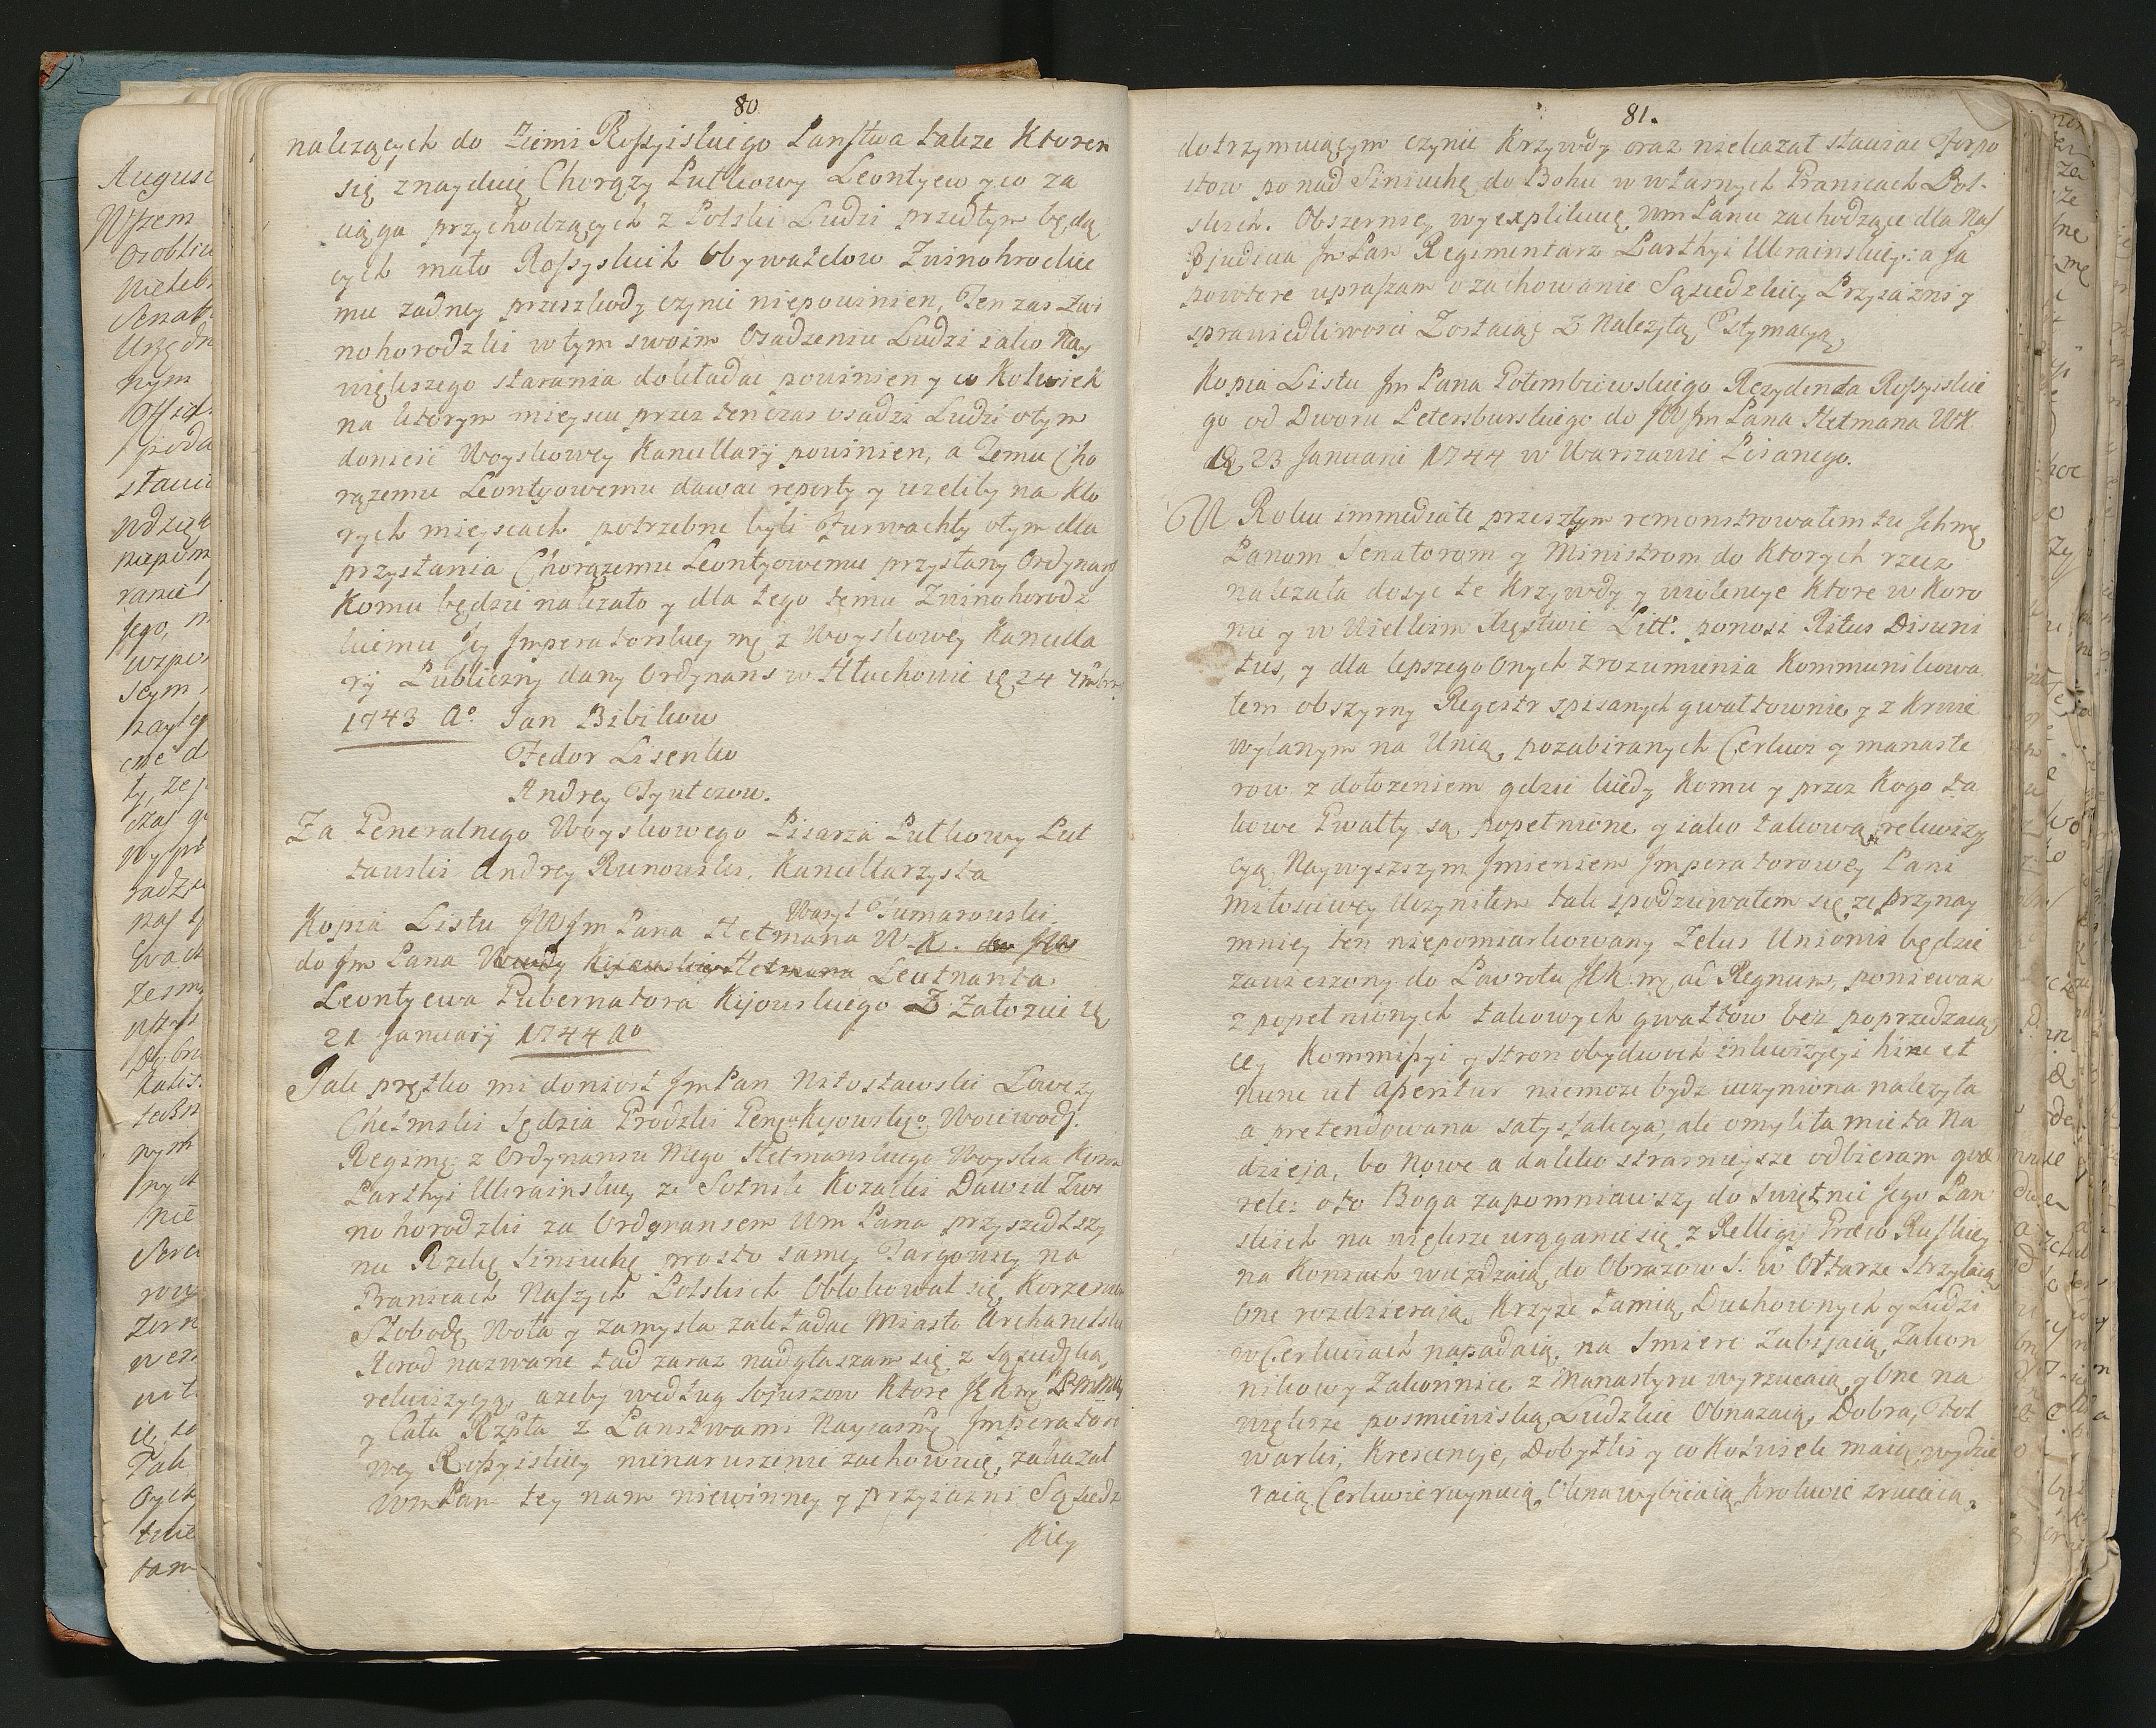 80
nalezących do Ziemi Rossyiskiego Panstwa także Ktorem
się znayduię Chorąży Pułkowy Leontyew y co za
ciąga przychodzących z Polski Ludzi przedtym będą
cych mało Rossyskich Obywatelow Zwinohrodkie
mu żadney przeszkody czynic niepowinien, Ten zas Zwi
nohorodzki w tym swoim Osadzeniu Ludzi iako Nay
większego starania dokładac powinien y co Kolwiek
na ktorym mieyscu przez ten czas osadzi Ludzi o tym
doniesc Woyskowey Kancellaryi powinien, a Temu Cho
rązemu Leontyowemu dawac reporty y iezeliby na Kto
rych mieyscach potrzebne byli Furwachty o tym dla
przysłania Chorązemu Leontyowemu przysłany Ordynans
Komu będzie nalezało y dla tego temu Zwinohorodz
kiemu Jey Imperatorskiey mci z Woyskowey Kancella
ryi Publiczny dany Ordynans w Hłuchowie die 24 7mbra
1743 Ao. Jan Bibikow
Fedor Lisenko
Andrey Tyutczew.
Za Generalnego Woyskowego Pisarza Pułkowy Puł
tawski Andrey Runowski. Kancellarzysta
Wasyl Tumarowski.
Kopia Listu JWJm Pana Hetmana W. K. do JW
do Jm Pana Leutnanta
Leontyewa Gubernatora Kijowskiego Z Załozic die
21 January 1744 Ao
Jak prętko mi doniosł Jm Pan Nitosławski Łowczy
Chełmski Sędzia Grodzki Gener. Kijowskiego Woiewodz.
Regimę z Ordynansu Mego Hetmanskiego Woyska Koron
Partyi Ukrainskiey ze Sotnik Kozacki Dawid Zwi
nohorodzki za Ordynansem Wm Pana przyszedłszy
na Rzekę Siniuchę prosto samey Targowicy na
Granicach Naszych Polskich Oblokował się, Korzeniow
Słobodę Woła y zamysla zakładac Miasto Archanelski
Horod nazwane tad zaraz nadgłaszam się z sąsiedzką
rekwizycyą azeby według Sojuszow Ktore JKMć P.N.M.
y Cała Rzpta z Panstwami Nayiasny Imperatoro
wey Rossyiskiey nienaruszenie zachowuię, zakazał
WmPan tey nam niewinney y przyiazni Sąsiedz
kiey

81.
dotrzymuiącym czynic Krzywdy oraz niekazał stawiac Forpo
stow ponad Siniuchę do Bohu w własnych Granicach Pol-
skich. Obszerniey wyexplikuię Wm Panu zachodzące dla Nas
Pjudicia Jm Pan Regimentarz Partyi Ukrainskiey: a Ja
powtore upraszam o zachowanie Sąsiedzkiey Przyiazni y
sprawiedliwosci Zostaiąc Z Nalezytą Estymacyą
Kopia Listu Jm Pana Golembiowskiego Rezydenta Rossyiskie
go od Dworu Petersburskiego do JWJm Pana Hetmana WK
die 23 Januarii 1744 w Warszawie Pisanego.
W Roku immediate przeszłym remonstrowałem tu Ichmę
Panom Senatorom y Ministrom do Ktorych rzecz
nalezała dosyc te Krzywdy y wiolencye Ktore w Koro
nie y w Wielkim Xięstwie Litt: ponosi Ritus Disuni
tus, y dla lepszego Onych zrozumienia Kommunikowa
łem obszyrny Regestr spisanych gwałtownie y z Krwie
wylanym na Unią, pozabiranych Cerkwi y manaste
row z dołozeniem gdzie kiedy Komu y przez Kogo ta
kowe Gwałty są popełnione y iako takową rekwizy
cyą Naywyszszym Imieniem Imperatorowey Pani
miłosciwey Uczyniłem tak spodziwałem się ze przynay
mniey ten niepomiarkowany Zelus Unionis będzie
zawieszony do Powrotu JKmci ad Regnum, poniewaz
z popełnionych takowych gwałtow bez poprzedzaią
cey Kommissyi y stron obydwoch inkwizycyi hinc et
nunc ut aperitur niemoze bydz uczyniona nalezyta
a pretendowana satysfakcya, ale omyliła mie ta Na
dzieja, bo Nowe a daleko straszniejsze odbieram gwe
rele: oto Boga zapomniawszy do swiętnic Jego Pan
skich na większe urąganie się z Relligij Graeco Ruskiey
na Koniach wiezdzaią, do Obrazow S. w Ołtarze Strzylaią
One rozdzieraią, Krzyze łamią, Duchownych y Ludzi
w Cerkwiach napadaią, na Smierc Zabijaią, Zakon
nikow y Zakonnice z Manastyru wyrzucaią, y One na
większe posmiewiska Ludzkie Obnazaią, Dobra, Fol
warki, Krescencye, Dobytki y co Kościele maią, wydzie
raią, Cerkwie ruynuią, Okna wybiiaią, Krokwie zrucaią,